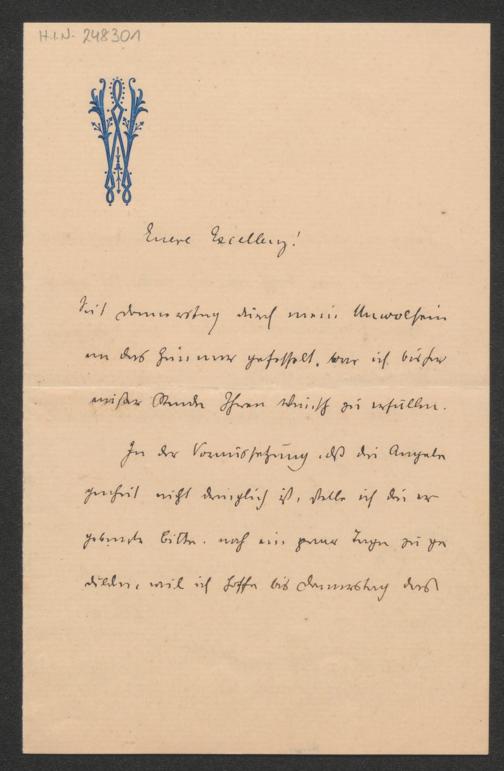 H.I.N. 248301
W
Euere Excellenz!
Seit Donnerstag durch mein Unwolsein
an das Zimmer gefesselt, war ich bisher
außer Stande Ihren Wunsch zu erfüllen.
In der Voraussetzung, daß die Angele
genheit nicht dringlich ist, stelle ich die er
gebenste Bitte, noch ein paar Tage zu ge
dulden, weil ich hoffe bis Donnerstag das